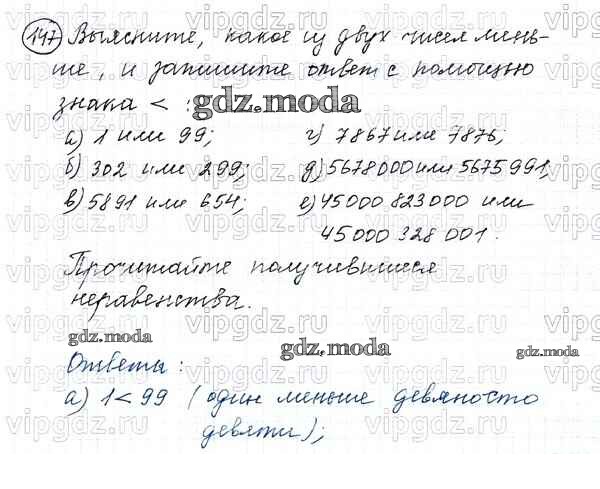 147 Выясните, какое из двух чисел мень-
ше, и запишите ответ с помощью
знака < :
gdz.moda
а) 1 или 99; г) 7867 или 7876;
б) 302 или 299; д) 5678000 или 5675991;
в) 5891 или 654; е) 45000 823000 или
45 000 328 001.
Прочитайте получившиеся
неравенства.
gdz.moda gdz.moda gdz.moda
Ответы:
а) 1 < 99 (один меньше девяносто
девяти);
vipgdz.ru